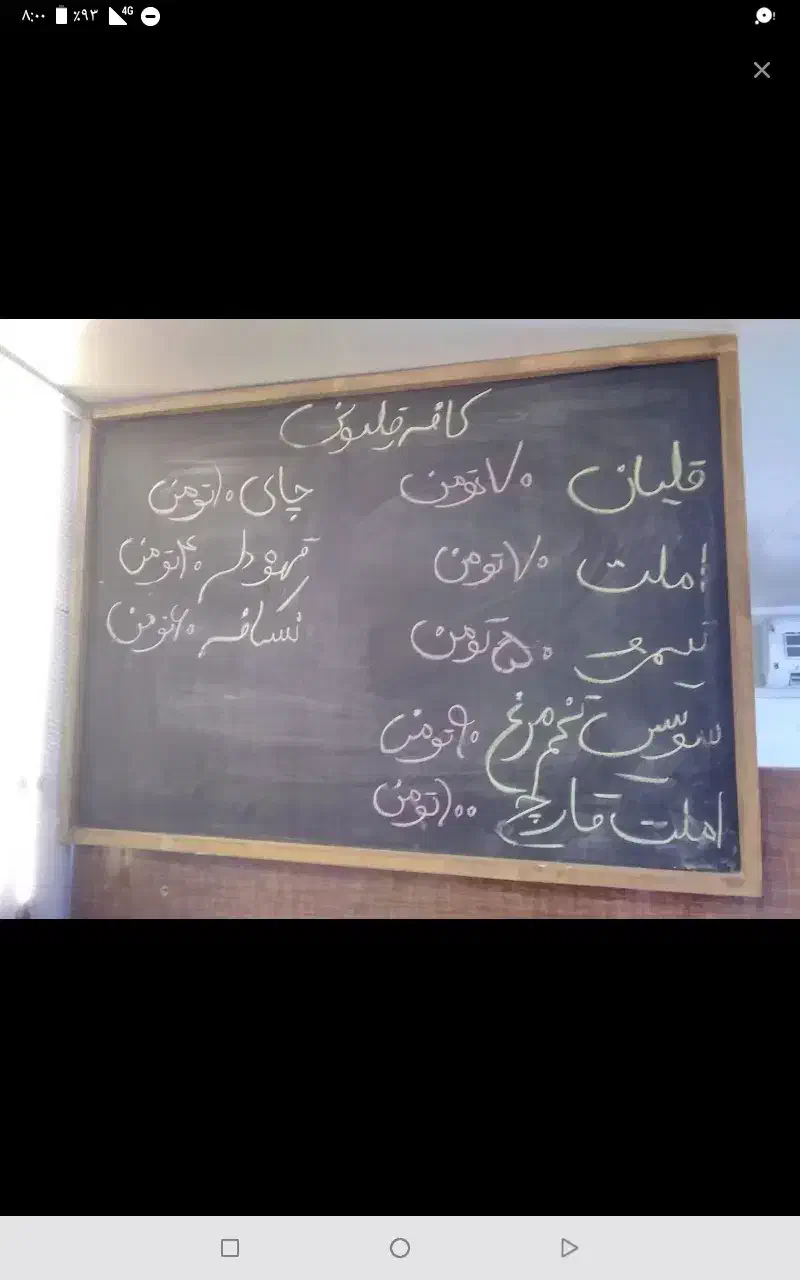 ۸:۰۰ ٪۹۳ 4G
کافه قلیونی
قلیان ۷۰ تومن
املت ۷۰ تومن
نیمرو ۵۰ تومن
سوسیس تخم مرغ ۹۰ تومن
املت قارچ ۱۰۰ تومن
چای ۱۰ تومن
قهوه ۴۰ تومن
نسکافه ۶۰ تومن